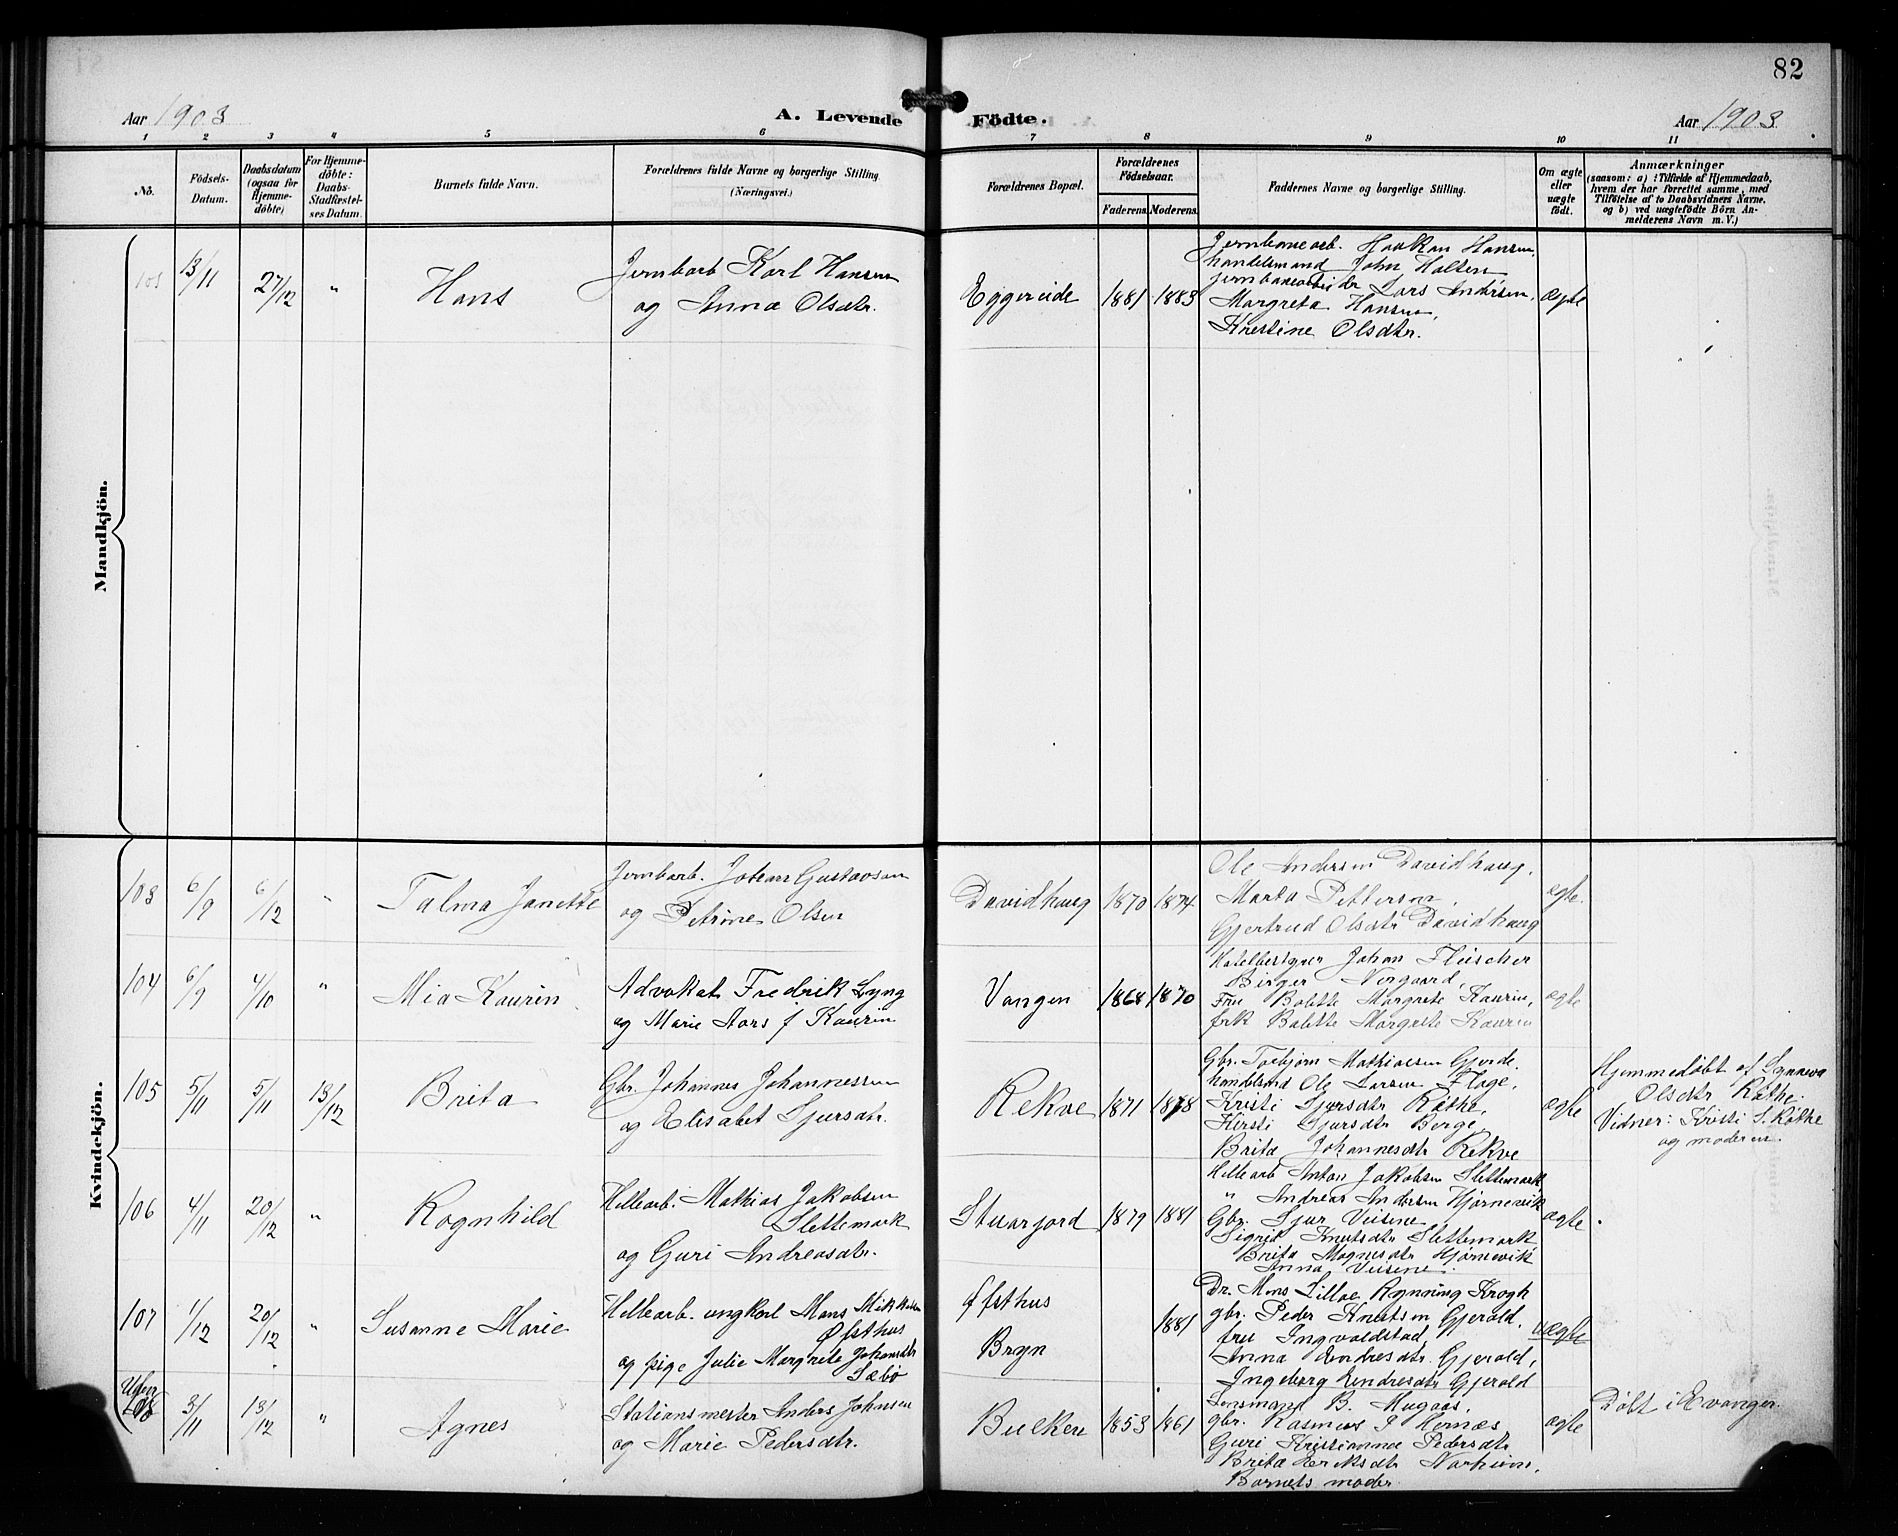 82
Aar 1903
A. Levende Födte.
Aar 1903
1 2 3 4 5 6 7 8 9 10 11
No.
Födsels-
Datum.
Daabsdatum
(ogsaa for
Hjemme-
døbte)
For Hjemme-
døbte:
Daabs-
Stadfæstel-
ses Datum.
Barnets fulde Navn.
Forældrenes fulde Navne og borgerlige Stilling
(Næringsvei.)
Forældrenes Bopæl.
Forældrenes
Födselsaar.
Faderens. Moderens.
Faddernes Navne og borgerlige Stilling.
Om ægte
eller
uægte
födt.
Anmærkninger
(saasom: a) i Tilfælde af Hjemmedaab,
hvem der har forrettet samme, med
Tilföielse af to Daabsvidners Navne,
og b) ved uægtefödte Börn An-
melderens Navn m. V.)
Mandkjön.
13/11 27/12 " Hans
Jernbarb Karl Hansen
og Anna Olsdtr.
Eggereide 1881 1883
Jernbanearb. Haakon Hansen,
handelsmand John Holten
Jernbanearbeider Lars Andersen,
Margreta Hansen,
Kristine Olsdtr.
ægte
Kvindekjön.
103 6/9 6/12 " Talma Janette
Jernbarb. Johan Gustavson
og Petrine Olsen
Davidhaug 1870 1874
Ole Andersen Davidhaug,
Marta Pettersen,
Gjertrud Olsdtr Davidhaug
ægte.
104 6/9 4/10 " Mia Kaurin
Advokat Fredrik Lyng
og Marie Aars f Kaurin
Vangen 1868 1870
Hotelbestyrer Johan Fleischer
Birger Norgaard,
Fru Bolette Margrete Kaurin,
frk Bolette Margrete Kaurin
ægte
105 5/11 5/11 13/12 Brita
Gbr. Johannes Johannessen
og Elisabet Sjursdtr.
Rekve 1871 1878
Gbr. Torbjørn Mathiassen Gjerde,
handelsmd Ole Larsen Flage,
Kristi Sjursdtr Røthe,
Kirsti Sjursdtr Berge,
Brita Johannesdtr Rekve
ægte
Hjemmedøbt af Synneva
Olsdtr Røthe.
Vidner: Kristi S. Røthe
og moderen
106 4/11 20/12 " Rognhild
Hellearb. Mathias Jakobsen
Slettemark
og Guri Andreasdtr.
Stuarjord 1879 1881
Hellearb Anton Jakobsen Slettemark
" Andreas Andersen Hjørnevik
Gbr. Sjur Veisene,
Sigrid Knutsdtr Slettemark
Brita Magnesdtr Hjørnevik
Anna Veisene.
ægte
107 1/12 20/12 " Susanne Marie
Hellearb. ungkarl Mons Mikkelsen
Øfsthus
og pige Julie Margrete Johansdtr
Sæbø
Øfsthus
Bryn
1881
Dr. Mons Lilloe Rynning Krogh
gbr. Peder Knutsen Gjerald,
fru Ingvaldstad,
Anna Endresdtr Gjerald,
Ingeborg Endresdtr Gjerald
uægte
Uden
No
3/11 13/12 " Agnes
Stationsmester Anders Johnsen
og Marie Pedersdtr.
Bulken 1853 1861
Lensmand B. Mugaas,
gbr. Rasmus P Hernæs
Guri Kristianna Pedersdtr
Brita Eriksdtr
Barnets moder
ægte
Døbt i Evanger.